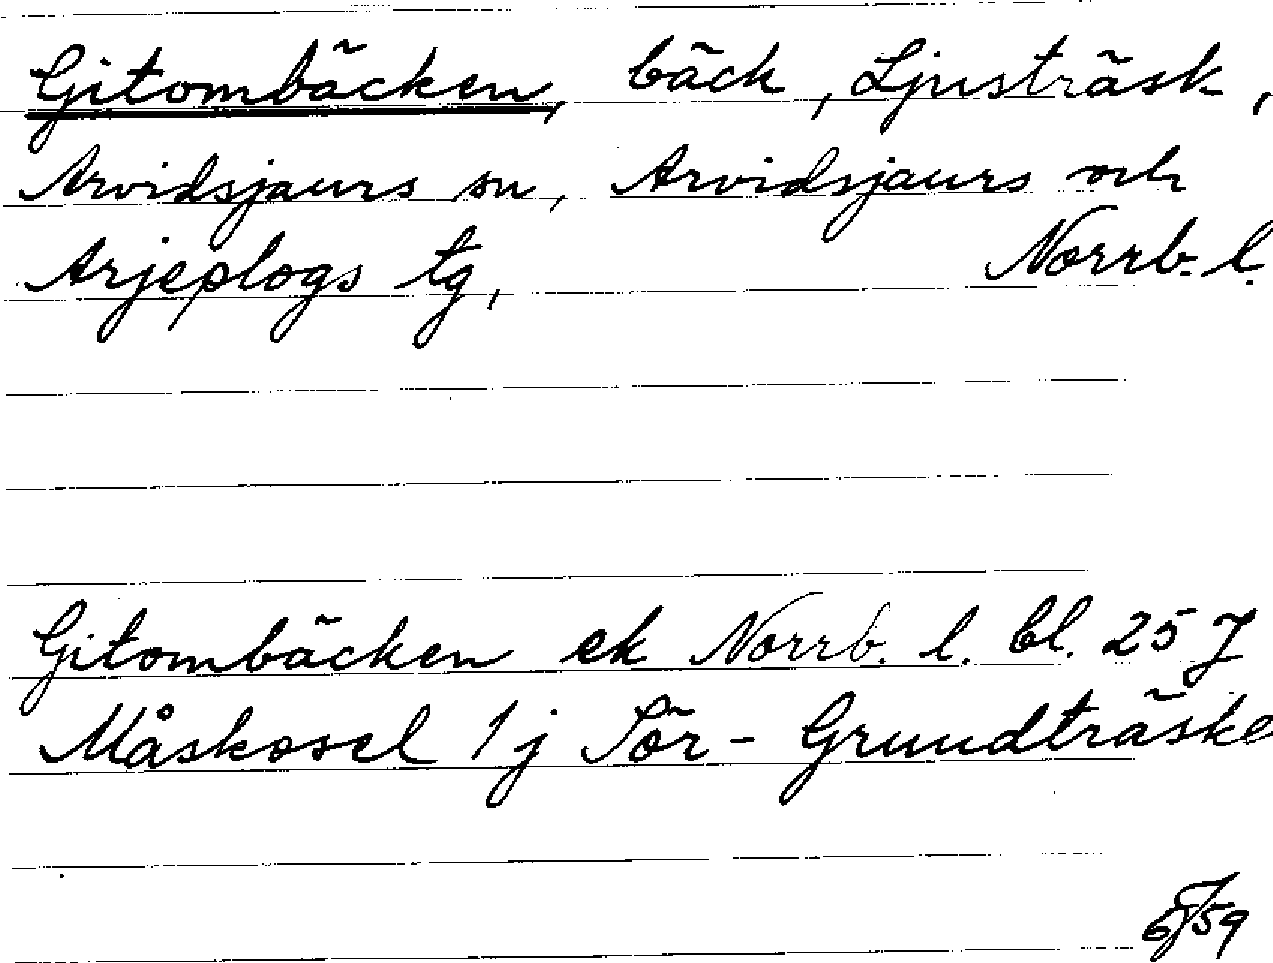 Gitombäcken, bäck, Ljusträsk,
Arvidsjaurs sn, Arvidsjaurs och
Arjeplogs tg, Norrb. l.
Gitombäcken ek Norrb. l. bl. 25 J
Måskosel 1 j Sör-Grundträske